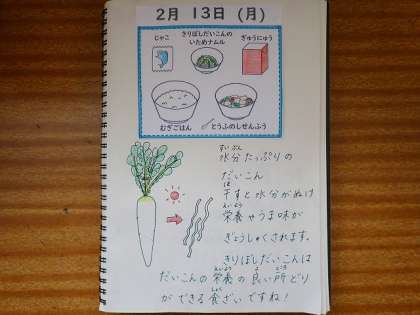 2月 13日 (月)
じゃこ
きりぼしだいこんの
いためナムル
ぎゅうにゅう
むぎごはん
とうふのしせんふう
すいぶん
水分たっぷりの
だいこん
ほ
干すと水分がぬけ
えいよう
栄養やうま味が
ぎょうしゅくされます。
きりぼしだいこんは
えいよう よ ところ
だいこんの栄養の良い所どり
しょく
ができる食ざいですね!